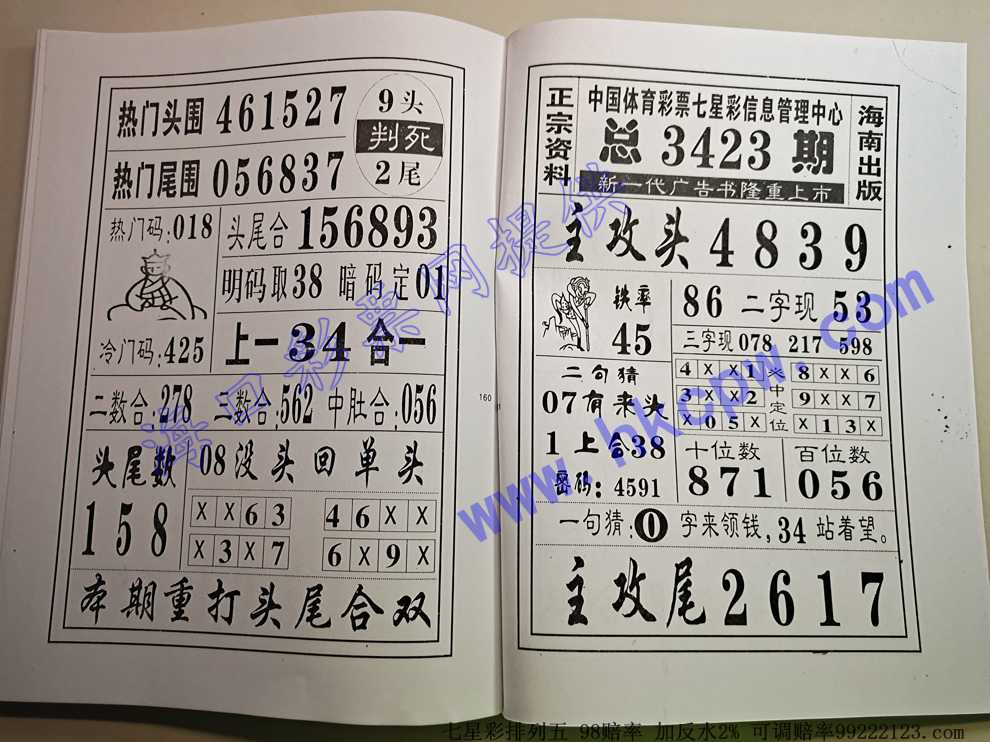 热门头围 461527
9头
判死
2尾
热门尾围 056837
热门码:018
头尾合 156893
明码取38 暗码定01
冷门码:425
上一34合一
二数合:278 三数合:562 中肚合:056
头尾数
158
08没头回单头
XX63
46XX
X3X7
6X9X
本期重打头尾合双
160
正宗资料
中国体育彩票七星彩信息管理中心
总3423期
新一代广告书隆重上市
海南出版
主攻头4839
铁率
45
86 二字现 53
三字现 078 217 598
二句猜
07有来头
1上合38
密码:4591
4XX1
3XX2
X05X
中定位
8XX6
9XX7
X13X
十位数
871
百位数
056
一句猜:0字来领钱,34站着望。
主攻尾2617
www.hkcpw.com
七星彩排列五 98赔率 加反水2% 可调赔率99222123.com